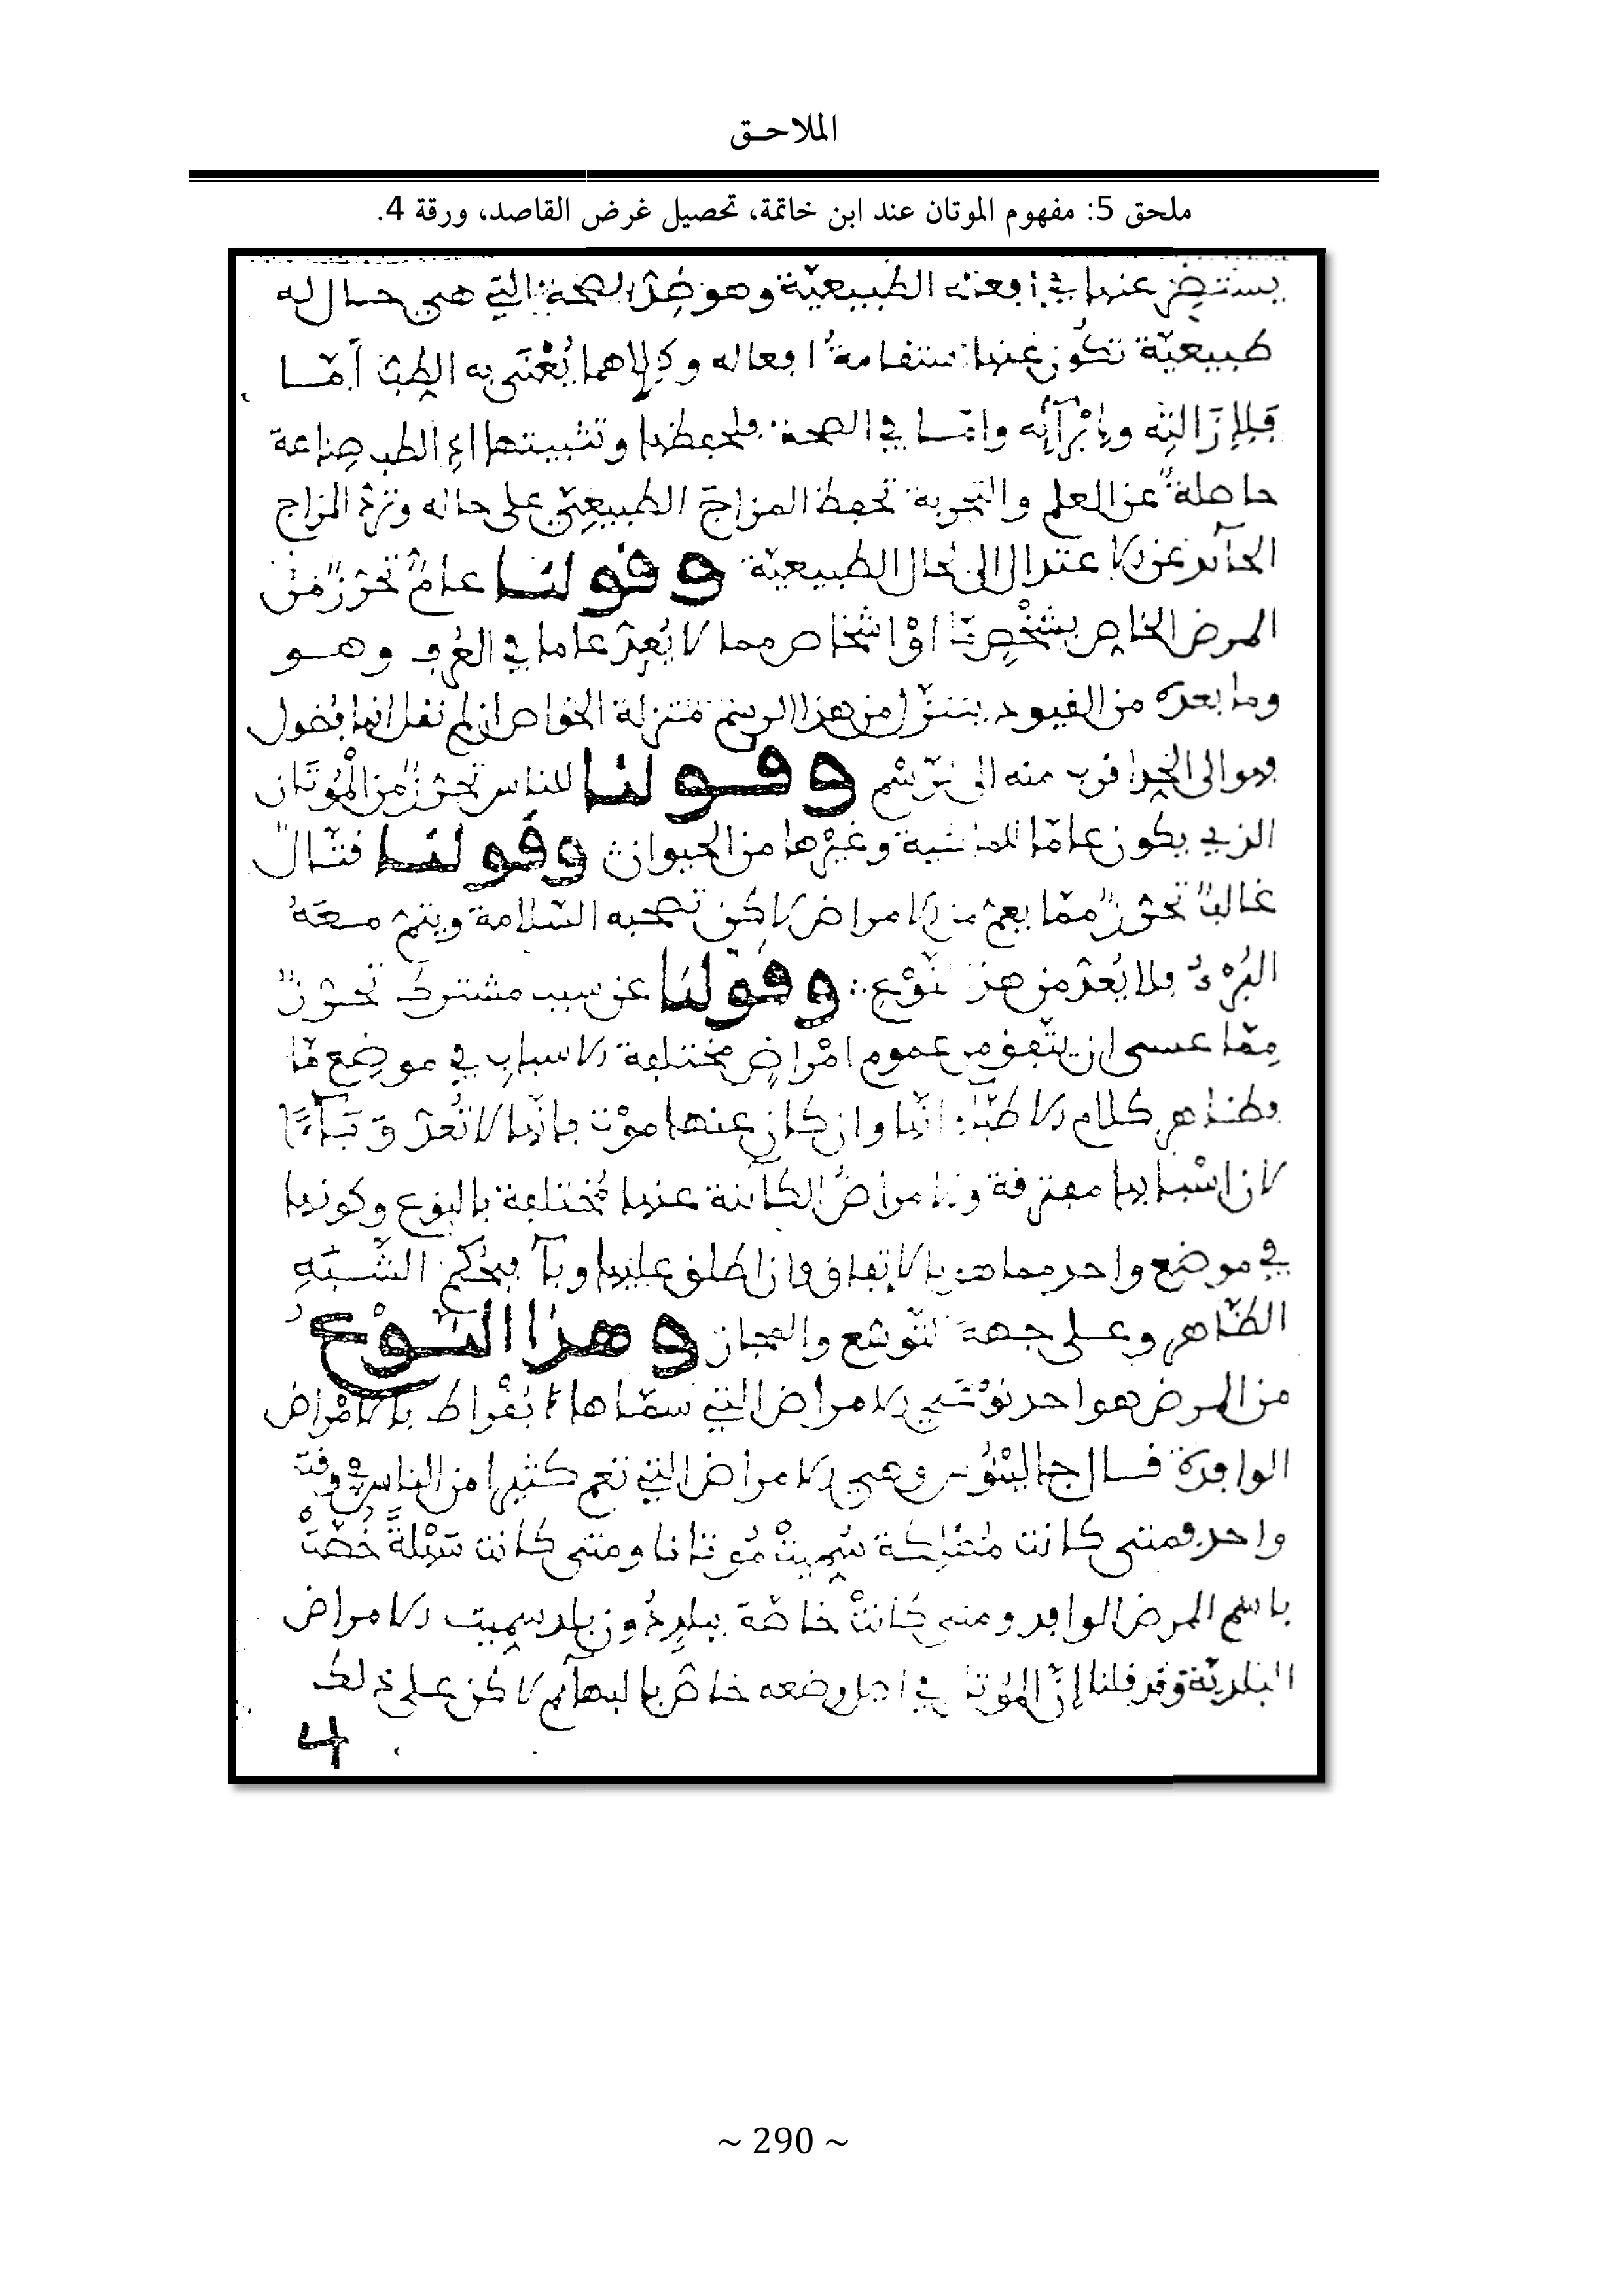 الملاحـق
ملحق 5: مفهوم الموتان عند ابن خاتمة، تحصيل غرض القاصد، ورقة 4.
يستضر عنها في أفعاله الطبيعيّة وهو ضدّ الصحة التي هي حال له
طبيعيّة تكون عنها استقامةُ افعاله وكِلاهما يُعْنَى به الطبّ أمّا
فَلِإزَالتِه وإِبْرَآئِه وامّا في الصحة فلحفظها وتثبيتها اذ الطب صناعة
حاصلةٌ عن العلم والتجربة تحفظ المزاجَ الطبيعيّ على حاله وتردّ المزاج
الحآئد عن الاعتدال الى الحال الطبيعيّة وقولنا عامٌّ تحرّزٌ من
المرض الخاص بشخْصٍ مّا اوْ اشخاص مما لا يُعدّ عاما في العُرف وهو
وما بعده من القيود يتنزّل من هذا الرسم منزلة الخواص ان لم نقل انها فصول
فهو الى الحد اقرب منه الى الرّسْم وقولنا للناس تحرّزٌ من الْمُوتَان
الذي يكون عامّا للماشية وغيْرها من الحيوان وقولنا قتّالٌ
غالبًا تحرّزٌ ممّا يعمّ من الامراض لاكن تصحبه السّلامة ويتمّ معَهُ
البُرْءُ فلا يُعدّ من هذا النّوْع وقولنا عن سبب مشترك تحرّزٌ
مِمّا عسى ان يتّفق من عموم امْراضٍ مختلفة الاسبابِ في موضع مّا
فظاهر كلام الاطبّاء انّها وان كان عنها موْت فإنّها لا تُعدّ وَبَآءً
لان اسْبابها مفترقة والامراضُ الكآئنة عنها مُختلفة بالنوع وكونها
في موضع واحد مما هو بالاتفاق فان اطلق عليها وبآء فبحُكْم الشَّبَهِ
الظّاهر وعلى جهة التّوسّع والمجاز وهذا النّوْعُ
من المرض هو احد نوْعَيِ الامراض التي سمّاها ابُقْراط بالامْراض
الوافدة قال جالينُوس وهي الامراض التي تعم كثيرا من الناس في وقت
واحد فمتى كانت مُهْلِكة سُمِّيتْ مُوتانا ومتى كانت سَهْلةً خُصّتْ
باسم المرض الوافد ومتى كانتْ خاصّة ببلدٍ دُون بلد سمِّيت الامراض
البلديّة وقد قلنا إنّ المُوتان في اصل وضعه خاصّ بالبهآئم لاكن على ذلك
4
~ 290 ~